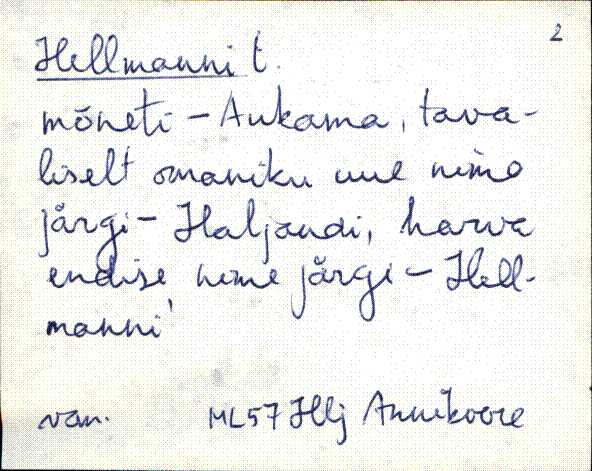 2
Hellmanni t.
mõneti – Aukama, tava-
liselt omaniku uue nime
järgi – Haljandi, harva
endise nime järgi – Hell-
manni'
van. ML57 Hlj Annikvere